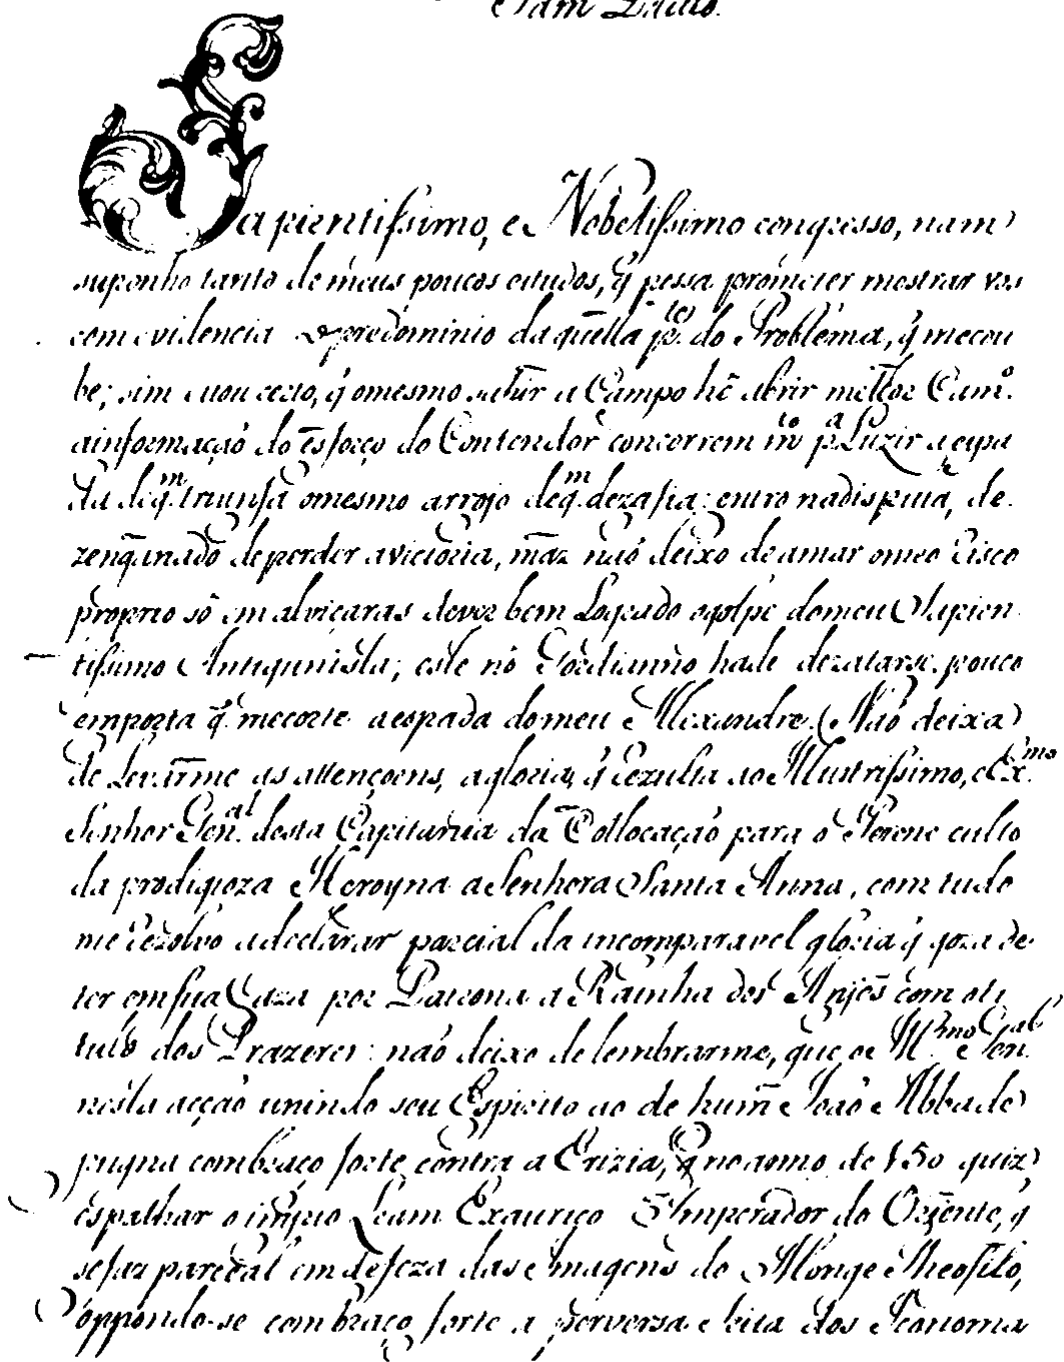 Sam Paulo.
Sapientissimo, e Nobelissimo congresso, nam
suponho tanto de meus poucos estudos, q̃ possa prometer mostrar vos
com evidencia o predominio daquella p.te do Problema, q̃ mecou
be; sim estou certo, q̃ omesmo sahir a Campo he abrir melhor Cam.o
ainformação do esforço do Contendor concorrem m.to p.a Luzir a espa
da deq.m triunfa omesmo arrojo deq.m dezafia: entro nadisputa, de
zenganado deperder avictoria, maz não deixo de amar omeo Risco
proprio só em alviçaras dever bem Logrado ogolpe domeu Sapien
tissimo Antigunista; este nó Gordianno hade dezatarse pouco
emporta q̃ mecorte aespada domeu Alexandre. Não deixa
de Levarme as attençoens, agloria, q̃ Rezulta ao Illustrissimo, e Ex.mo
Senhor Gen.al desta Capitania da Collocação para o Perene culto
da prodigioza Heroyna aSenhora Santa Anna, com tudo
me Rezolvo adeclarar parcial da incomparavel gloria q̃ goza de
ter emsua Caza por Patrona a Rainha dos Anjos com oti
tulo dos Prazeres: não deixo delembrarme, que o Ill.mo e Gen.al
nesta acção unindo seu Espirito ao de hum João Abbade
pugna combraço forte contra a Erizia, q̃ noanno de 150 quiz
espalhar o impio Leam Exaurico Imperador do Oriente, q̃
sefaz parcial emdefeza das Imagens do Monge Theofilo,
oppondo-se combraço forte a perversa Seita dos Iconoma